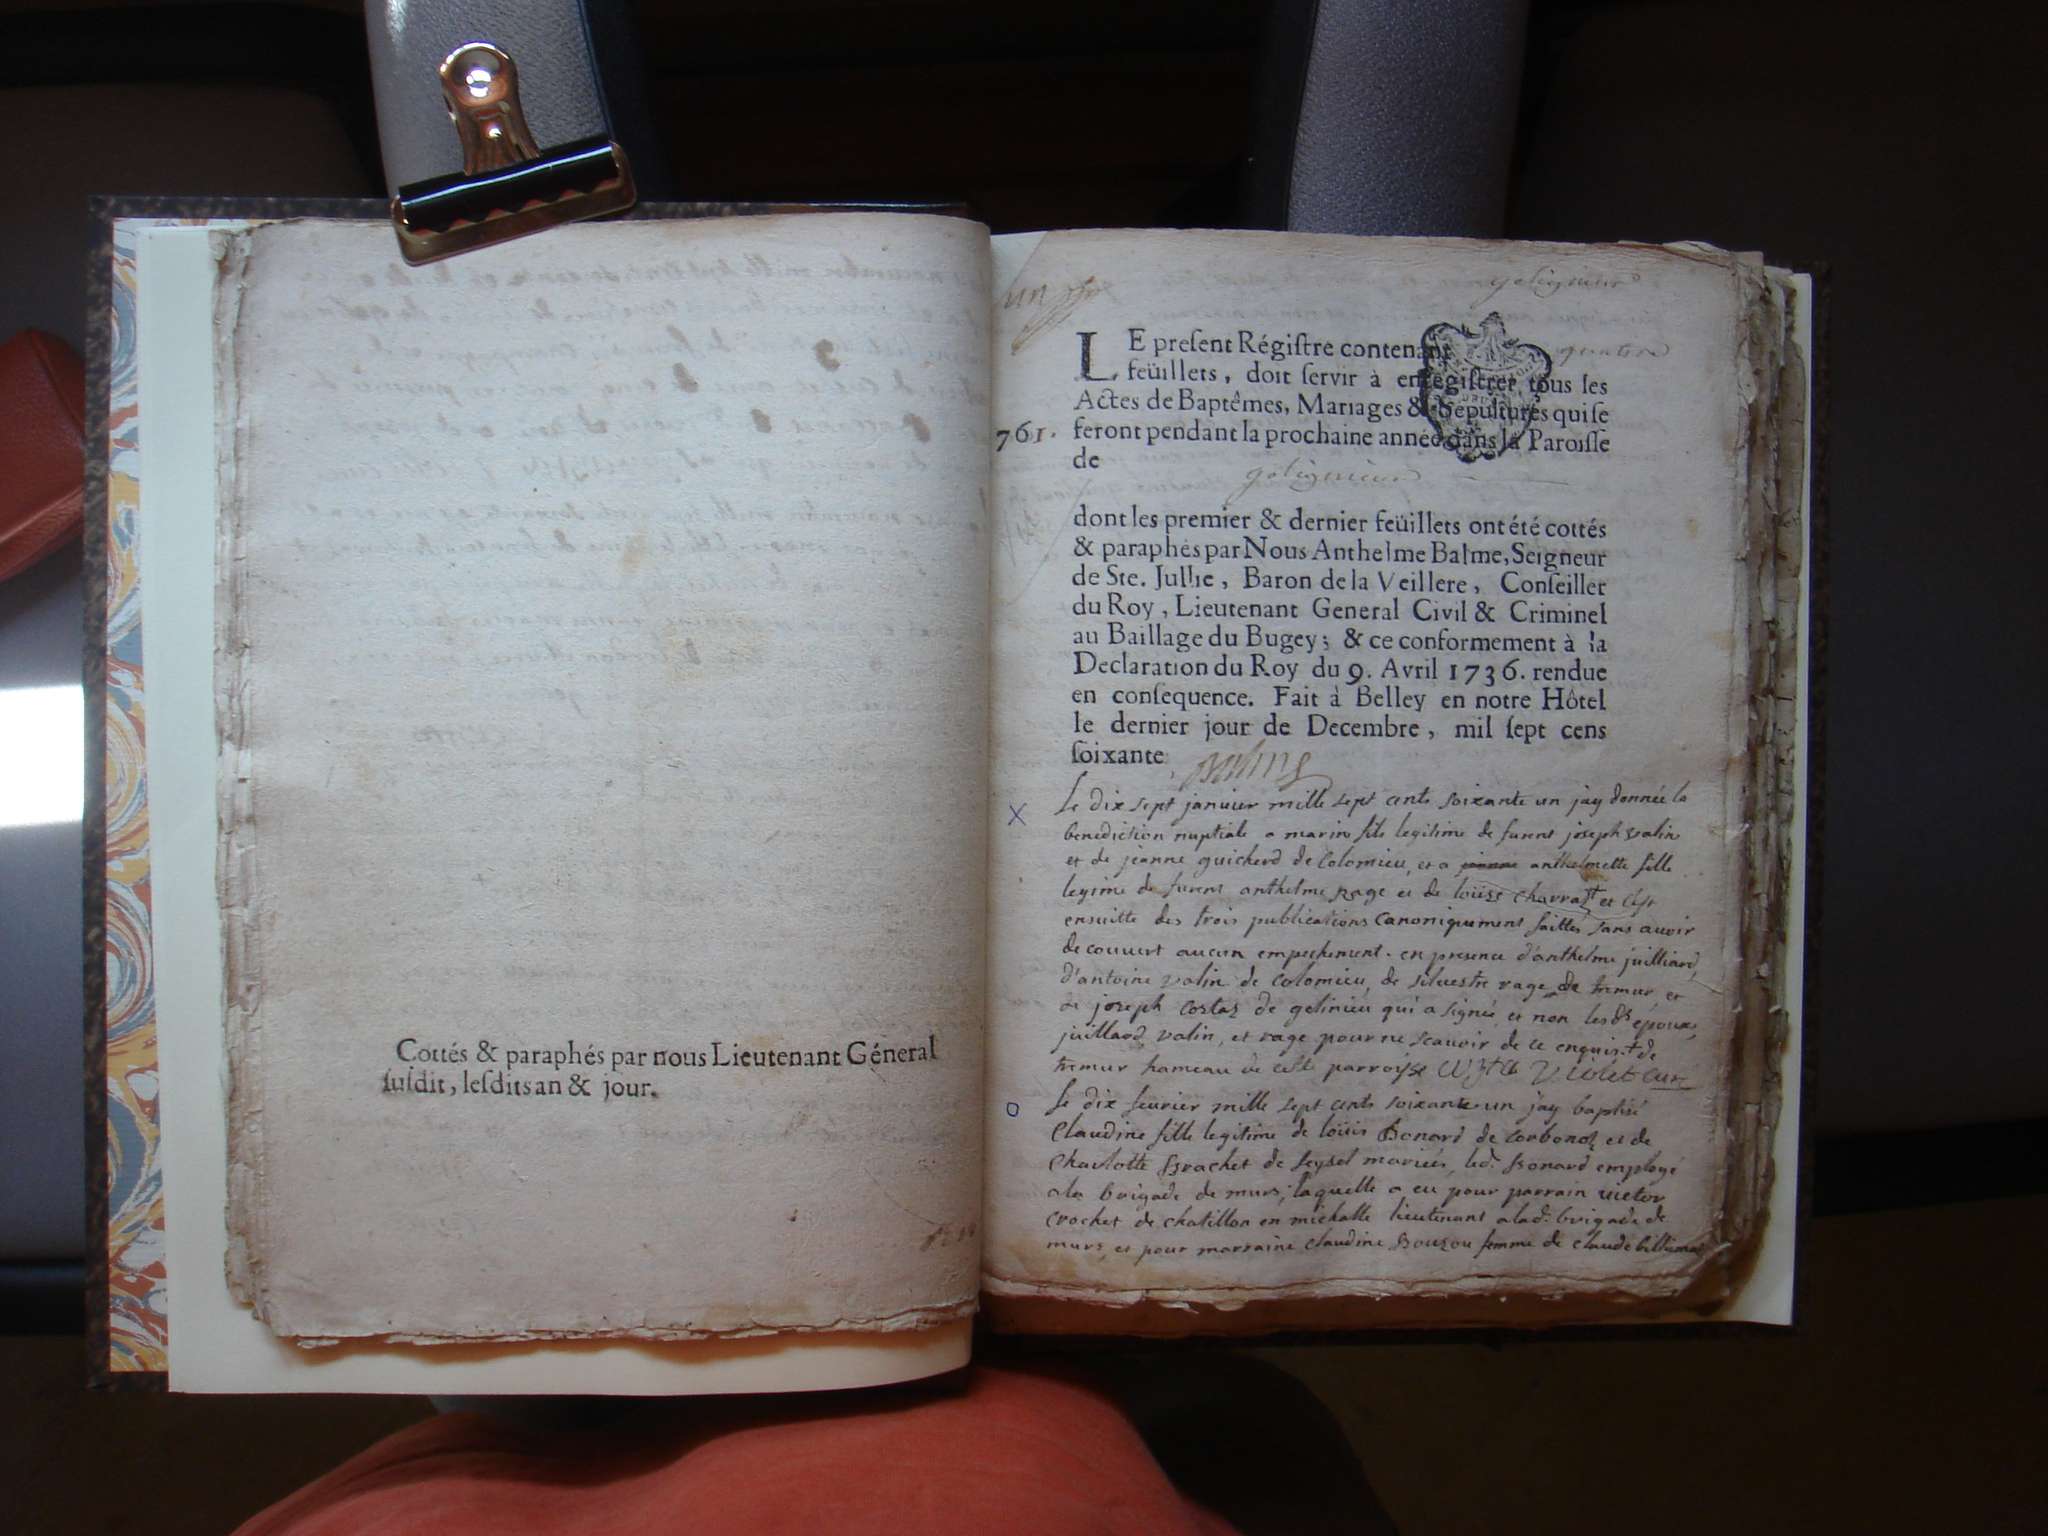 Cottés & paraphés par nous Lieutenant Géneral
susdit, lesdits an & jour.
un
gelignieu
LE present Régistre contenant quatre
feüillets, doit servir à enregistrer tous les
Actes de Baptêmes, Mariages & Sepultures qui se
761. feront pendant la prochaine année dans la Paroisse
de gelignieu
dont les premier & dernier feüillets ont été cottés
& paraphés par Nous Anthelme Balme, Seigneur
de Ste. Jullie, Baron de la Veillere, Conseiller
du Roy, Lieutenant General Civil & Criminel
au Baillage du Bugey; & ce conformement à la
Declaration du Roy du 9. Avril 1736. rendue
en consequence. Fait à Belley en notre Hôtel
le dernier jour de Decembre, mil sept cens
soixante balme
X Le dix sept janvier mille sept cents soixante un jay donnée la
benediction nuptiale a marin fils legitime de furent joseph valin
et de jeanne guicherd de Colomieu, et a anthelmette fille
legime de furent anthelme rage et de loüise charraz + et c'est
ensuitte des trois publications canoniquement faittes sans avoir
decouvert aucun empechement. en presence d'anthelme juilliard,
d'antoine valin de colomieu, de silvestre rage de tremur et
de joseph costaz de gelinieu qui a signé, et non lesds époux,
juillard, valin, et rage pour ne scavoir de ce enquis. + de
tremur hameau de cette parroisse Violet curé
o Le dix fevrier mille sept cents soixante un jay baptisé
Claudine fille legitime de loüis Bonard de corbonoz et de
Charlotte Brachet de seysel mariés, led. Bonard employé
a la brigade de murs; laquelle a eu pour parrain victor
crochet de chatillon en michalle lieutenant a lad. brigade de
murs, et pour marraine claudine Bouzou femme de claude